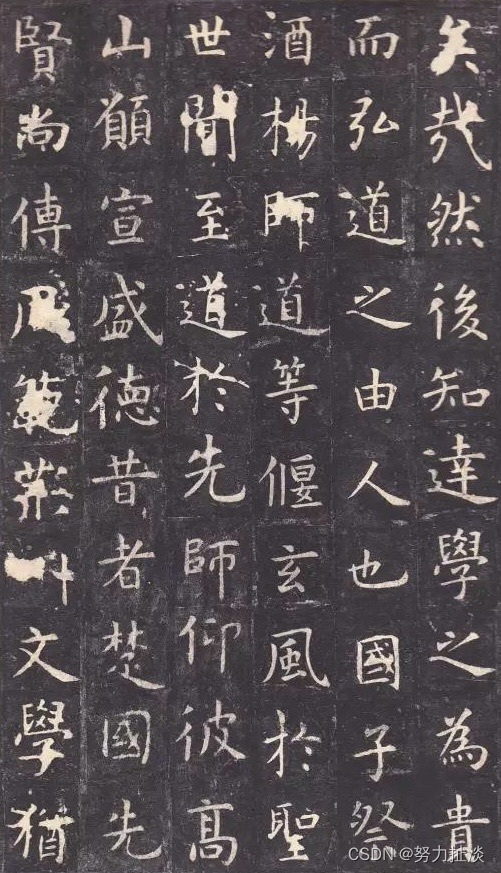 矣哉然後知達學之為貴
而弘道之由人也國子祭
酒楊師道等偃玄風於聖
世聞至道於先師仰彼高
山願宣盛德昔者楚國先
賢尚傳風範荊州文學猶
CSDN @努力扯淡